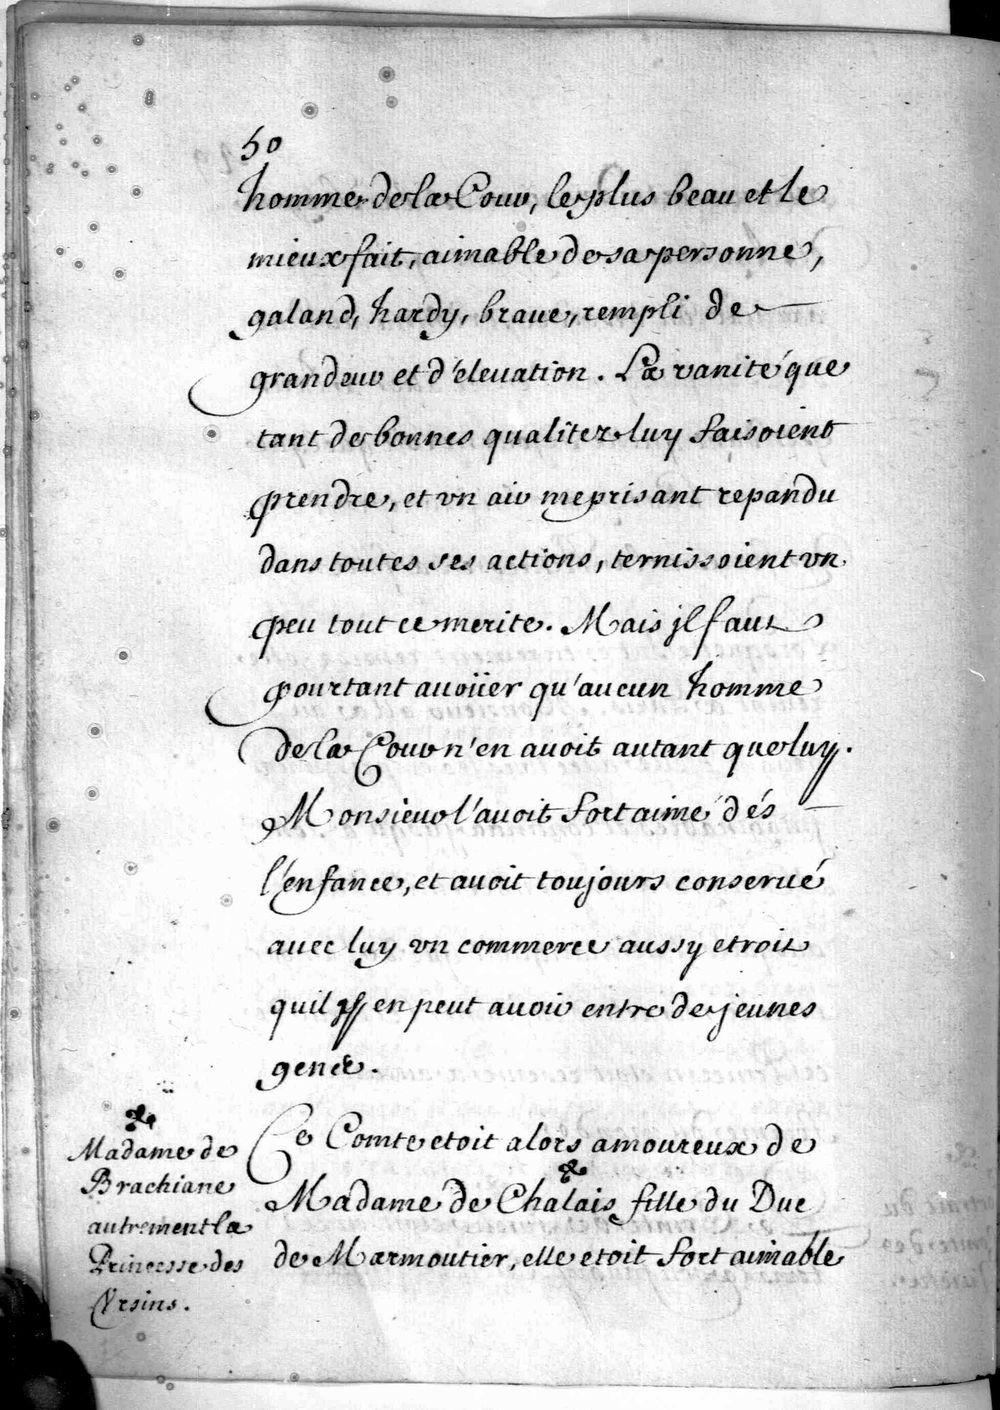 50
homme de la Cour, le plus beau et le
mieux fait, aimable de sa personne,
galand, hardy, braue, rempli de
grandeur et d'éleuation. La vanité que
tant de bonnes qualitez luy faisoient
prendre, et vn air meprisant repandu
dans toutes ses actions, ternissoient vn
peu tout ce merite. Mais jl faut
pourtant auoüer qu'aucun homme
de la Cour n'en auoit autant que luy.
Monsieur l'auoit fort aimé dés
l'enfance, et auoit toujours conserué
auec luy vn commerce aussy etroit
quil en peut auoir entre de jeunes
gence.
Ce Comte etoit alors amoureux de
Madame de Chalais fille du Duc
de Marmoutier, elle etoit fort aimable
Madame de
Brachiane
autrement la
Princesse des
Vrsins.